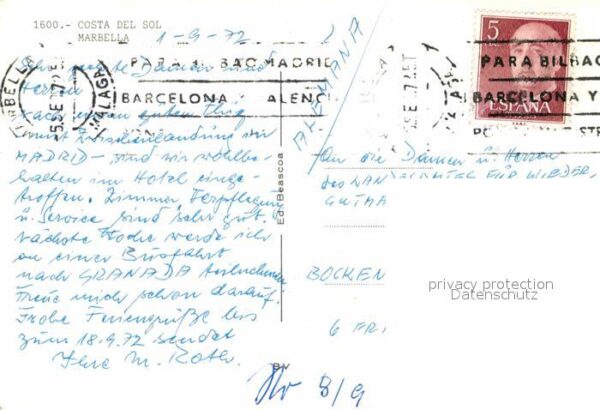 1600.- COSTA DEL SOL
MARBELLA
1-9-72
Sehr geehrte Damen und
Herren
nach einem guten Flug
mit Zwischenlandung in
MADRID - sind wir wohlbe-
halten im Hotel einge-
troffen. Zimmer, Verpflegung
u. Service sind sehr gut.
Nächste Woche werde ich
an einer Busfahrt
nach GRANADA teilnehmen
Freue mich schon darauf.
Frohe Feriengrüße bis
zum 18.9.72 sendet
Ihre M. Roth.
Ed. Beascoa
BV
MARBELLA
MALAGA
PARA BILBAO MADRID
BARCELONA Y VALENCI
5
ESPAÑA
PARA BILBAO
BARCELONA Y
ALEMANIA
An die Damen u. Herren
des FÜR WIEDER,
GUTMA
BOCKEN
6 FR
privacy protection
Datenschutz
8/9